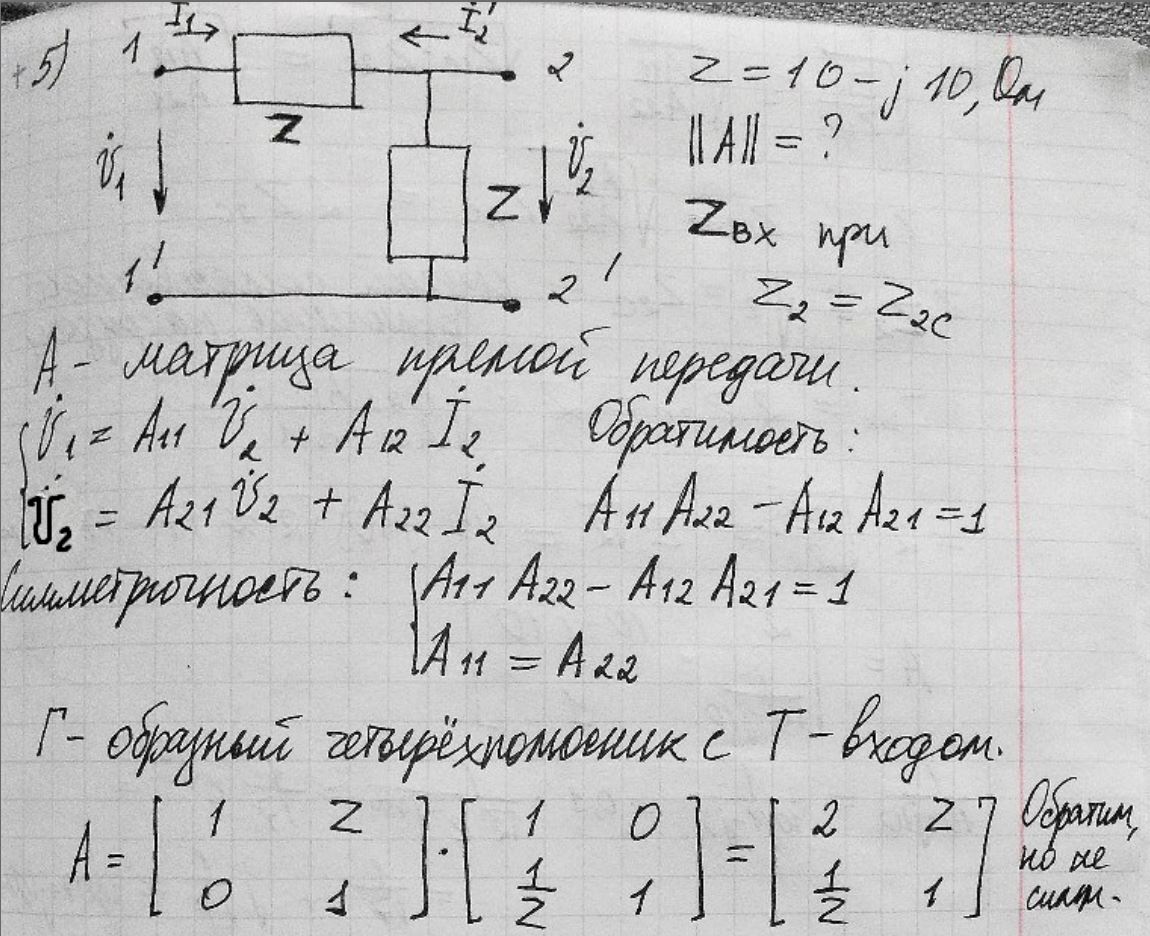 5)
1 İ₁ → ← İ₂' 2
Z
U̇₁ Z U̇₂
1' 2'
Z = 10 - j 10, Ом
||A|| = ?
Zвх при
Z₂ = Z₂c
A - матрица прямой передачи.
U̇₁ = A₁₁ U̇₂ + A₁₂ İ₂ Обратимость:
U̇₂ = A₂₁ U̇₂ + A₂₂ İ₂ A₁₁ A₂₂ - A₁₂ A₂₁ = 1
Симметричность: A₁₁ A₂₂ - A₁₂ A₂₁ = 1
A₁₁ = A₂₂
Г-образный четырёхполюсник с Т-входом.
A = [1 Z; 0 1] · [1 0; 1/Z 1] = [2 Z; 1/Z 1]
Обратим,
но не
симм.